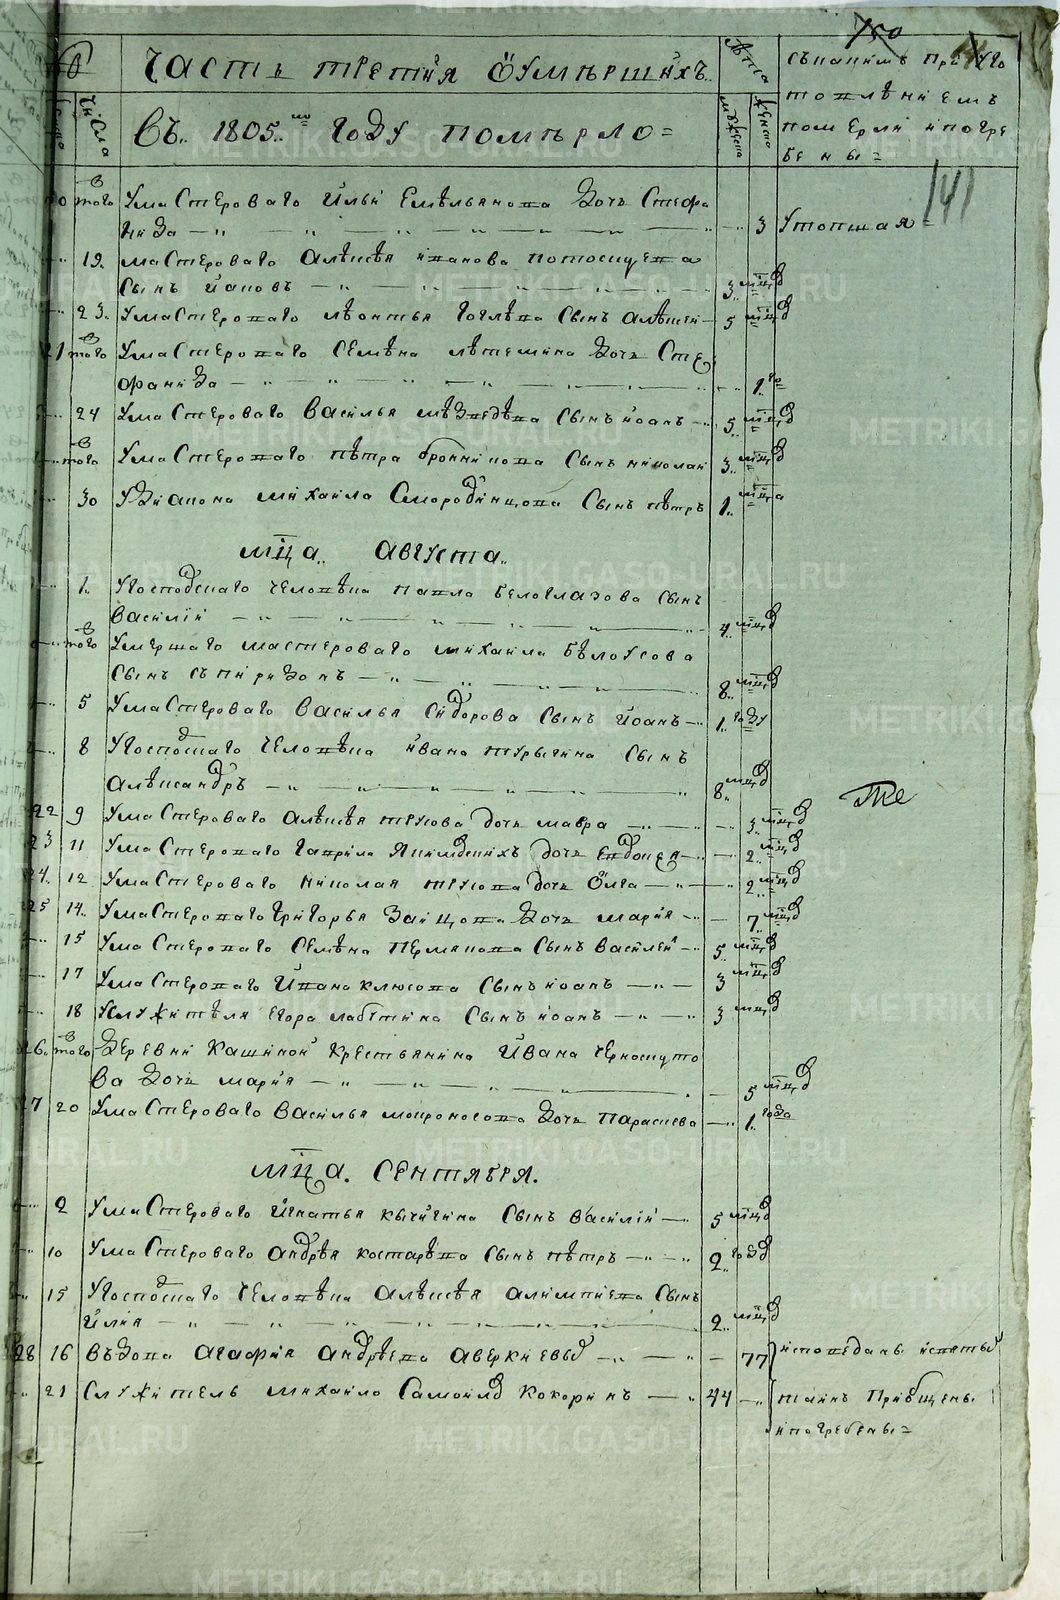 750
Часть третия о умѣршихъ
Лѣта
съ какимъ приуго
топлениемъ
померли и погре
бены=
числа
мужеска
женска
Въ 1805.мъ году помѣрло=
141
20 того У мастероваго Ильи Емѣльянова дочь Стефа
нида 3 Утопшая=
19. мастероваго алѣксѣя иванова сына
сынъ Иаковъ 3.. мцд
23. У мастероваго лѣонтья сынъ алѣксей 5 мцд
21 того У мастероваго Семѣна дочь Сте
фанида 1. го
24 У мастероваго Василья мѣдведѣва сынъ иоанъ 5.. мцд
того У мастероваго пѣтра бронникова сынъ николаи 3.. мцд
30 У диакона михаила Смородинцова сынъ пѣтръ 1.. мца
мца.. августа..
1. У господскаго человѣка павла белоглазова сынъ
василии 4.. мцд
того Умершаго мастероваго михаила бѣлоусова
сынъ спиридонъ 8.. мцд
5 У мастероваго василья сидорова сынъ иоанъ 1.. году
8 У господскаго человѣка ивана турыгина сынъ
алѣксандръ 8.. мцд
Тже
22 9 У мастероваго алѣксѣя трусова дочь мавра 3. мцд
23 11 У мастероваго гаврила дочь евдокея 2.. мцд
24. 12 У мастероваго николая трусова дочь олга 2.. мцд
25 14.. У мастероваго григорья зайцова дочь мария 7.. мцд
15 У мастероваго Семѣна пермякова сынъ василей 5.. мцд
17 У мастероваго Ивана клюсова сынъ иоанъ 3 мцд
18 У служителя егора лабутина сынъ иоанъ 3 мцд
26. того деревни кашиной крестьянина ивана черноскуто
ва дочь мария 5 мцд
27 20 У мастероваго василья мокроносова дочь параскева 1. года
мца. сентября.
2 У мастероваго игнатья кычигина сынъ василий 5 мцд
10 У мастероваго андрѣя костарѣва сынъ пѣтръ 2.. год
15 У господскаго человѣка алѣксѣя алимпиева сынъ
илия 2.. мцд
28 16 вѣдова агафия андрѣева аверкиевыд 77 исповеданы и святыд
21 служитель михаило самоилд кокоринъ 44 таинъ приобщены
и погребены=